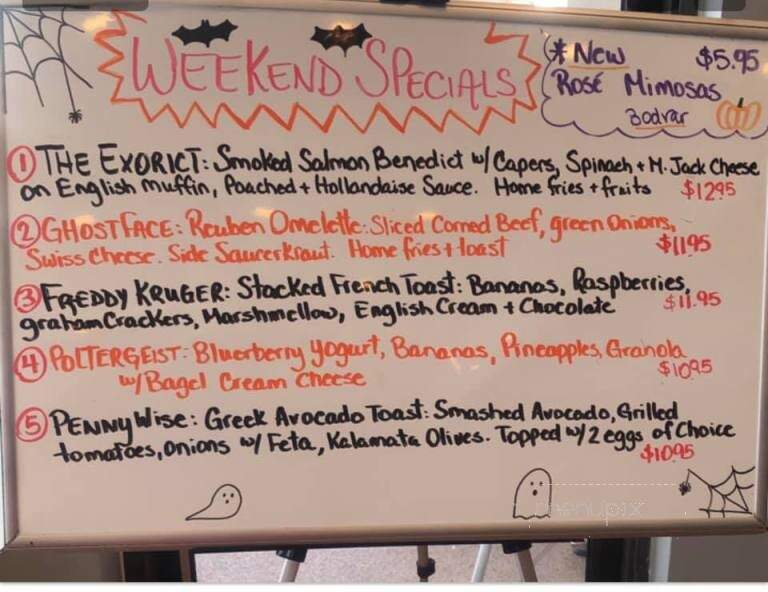 WEEKEND SPECIALS
* New $5.95
Rosé Mimosas
Bodvar
1 THE EXORICT: Smoked Salmon Benedict w/ Capers, Spinach + M. Jack Cheese
on English muffin, Poached + Hollandaise Sauce. Home fries + fruits $12.95
2 GHOSTFACE: Reuben Omelette: Sliced Corned Beef, green Onions,
Swiss Cheese. Side Saucerkraut. Home fries + toast $11.95
3 FREDDY KRUGER: Stacked French Toast: Bananas, Raspberries,
graham Crackers, Marshmellow, English Cream + Chocolate $11.95
4 POLTERGEIST: Bluerberry Yogurt, Bananas, Pineapples, Granola
w/ Bagel Cream Cheese $10.95
5 PENNYWISE: Greek Avocado Toast: Smashed Avocado, Grilled
tomatoes, onions w/ Feta, Kalamata Olives. Topped w/ 2 eggs of Choice
$10.95
menupix